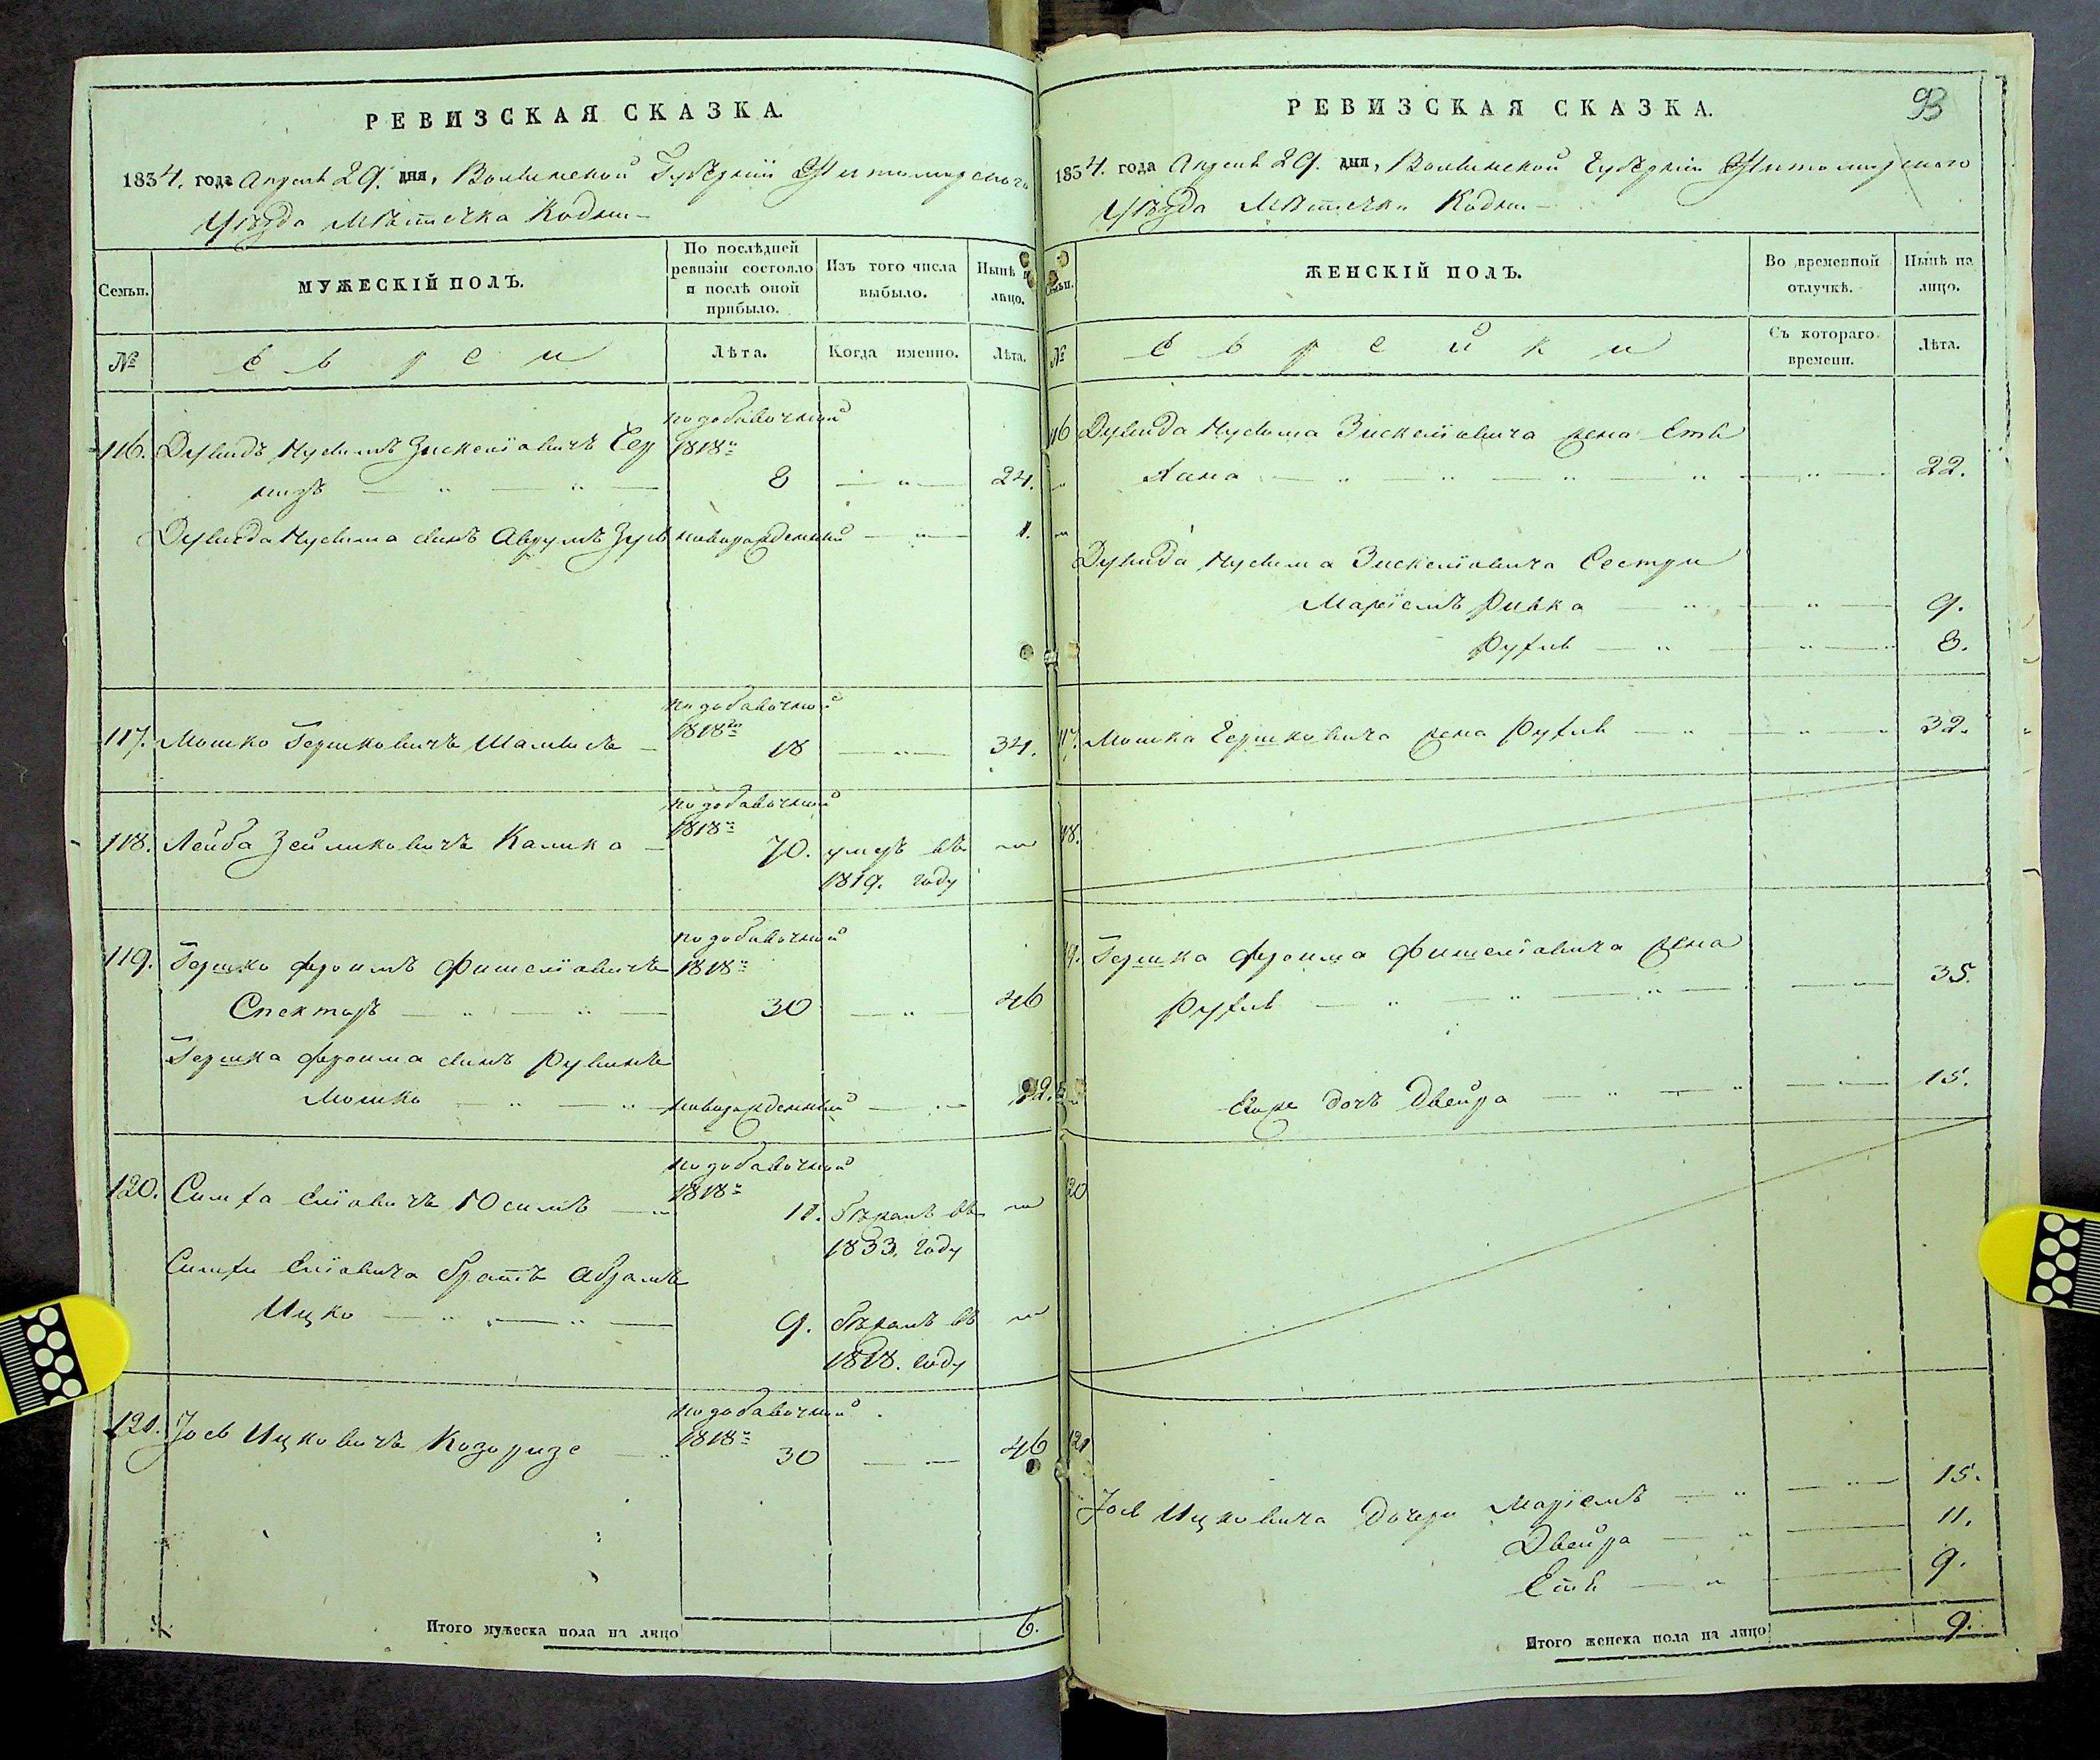 РЕВИЗСКАЯ СКАЗКА.
1834. года Апреля 29. дня, Волынской Губернии Житомирского
Уезда Местечка Кодни
Семьи.
МУЖЕСКІЙ ПОЛЪ.
По послѣдней ревизіи состояло и послѣ оной прибыло.
Изъ того числа выбыло.
Нынѣ на лицо.
№
Евреи
Лѣта.
Когда именно.
Лѣта.
подобавочной
116. Дувидъ Нусимъ Зискелiовичъ 1818й
8 — " — 24.
Дувида Нусима сынъ Аврумъ Зусь новорожденный — " — 1.
подобавочной
117. Мошко Гершковичъ 1818го 18 — " — 34.
подобавочной
118. Лейба Зейликовичъ Калика 1818й 70. умеръ въ
1819. году
подобавочной
119. Гершко Фроимъ Фишелiовичъ 1818й
Спекторъ — " — " — 30 — " — 46
Гершка Фроима сынъ Рувинъ
Мошко — " — " — новорожденный — " — 12.
подобавочной
120. Симха Елiовичъ 1818й 11. бежалъ въ
1833. году
Симхи Елiовича братъ Абрамъ
Ицко — " — " — 9. бежалъ въ
1818. году
подобавочной
121. Іось Ицковичъ 1818й 30 — " — 46
Итого мужеска пола на лицо 6.
93
РЕВИЗСКАЯ СКАЗКА.
1834. года Апреля 29. дня, Волынской Губернии Житомирского
Уезда Местечка Кодни
Семьи.
ЖЕНСКІЙ ПОЛЪ.
Во временной отлучкѣ.
Нынѣ на лицо.
№
Еврейки
Съ котораго времени.
Лѣта.
116 Дувида Нусима Зискелiовича жена Етя
Хана — " — " — " — " — 22.
Дувида Нусима Зискелiовича Сестри
Марiемъ Ривка — " — " — 9.
Рухля — " — " — 8.
117. Мошка Гершковича жена Рухля — " — " — 32.
118.
119. Гершка Фроима Фишелiовича жена
Рухля — " — " — " — 35.
Его же дочъ Двейра — " — " — 15.
120
121
Іося Ицковича дочери Марiемъ — " — " — 15.
Двейра — " — 11.
Етя — " — 9.
Итого женска пола на лицо 9.